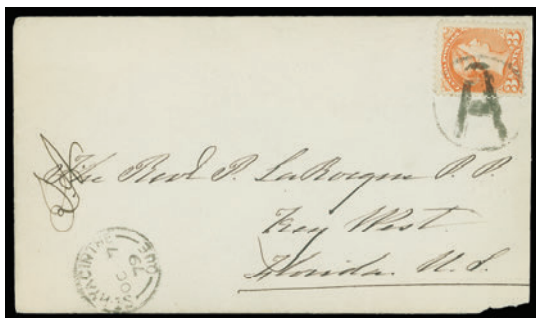 3 3
A
The Revd P. LaRocque P. P.
Key West
Florida. U. S.
ST HYACINTHE QUE
OC 7
79